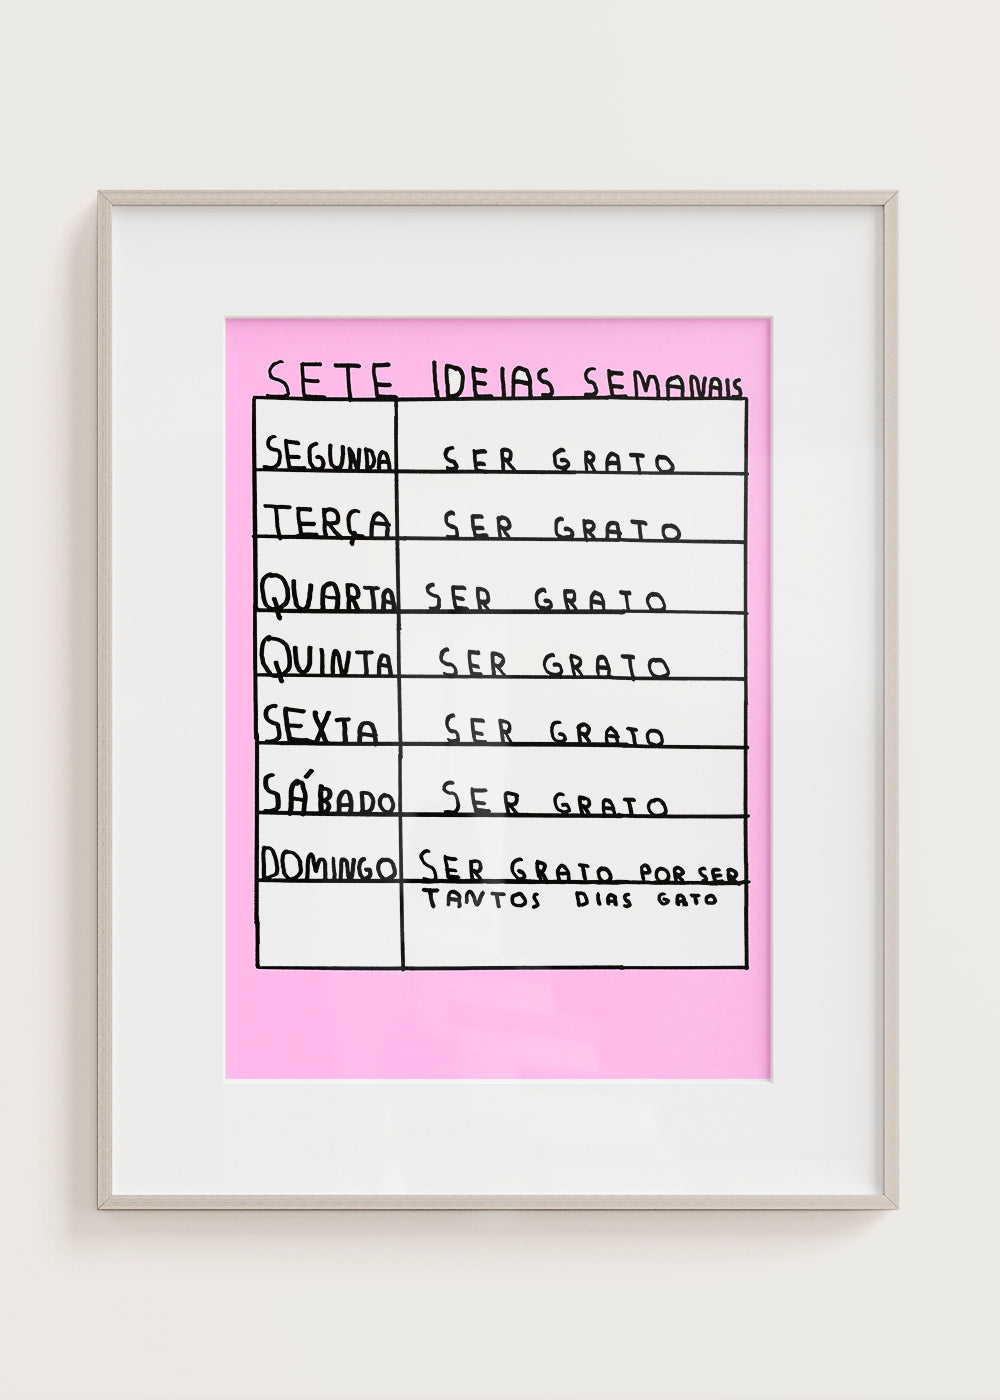 SETE IDEIAS SEMANAIS
SEGUNDA SER GRATO
TERÇA SER GRATO
QUARTA SER GRATO
QUINTA SER GRATO
SEXTA SER GRATO
SÁBADO SER GRATO
DOMINGO SER GRATO POR SER
TANTOS DIAS GATO